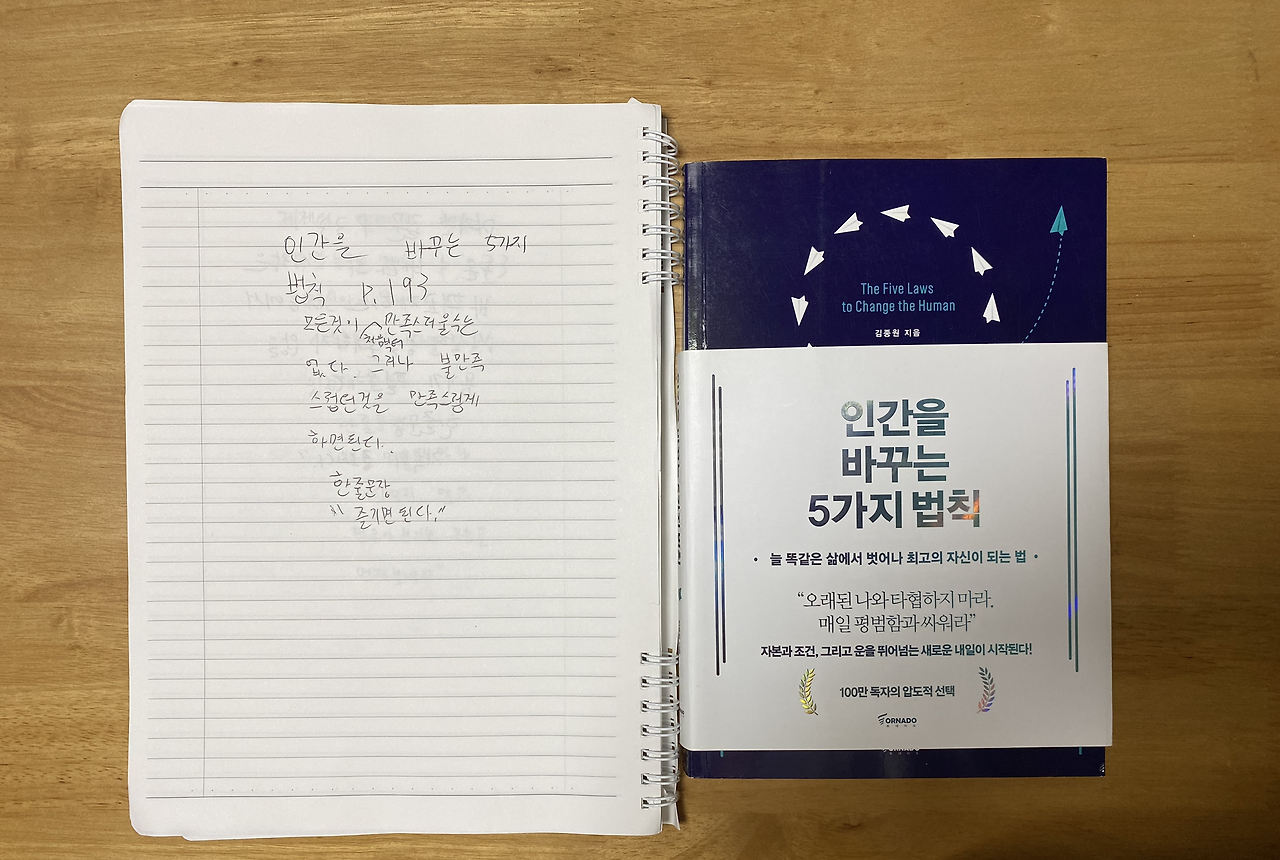 인간을 바꾸는 5가지
법칙 P.193
모든것이 처음부터 만족스러울수는
없다. 그러나 불만족
스럽던것을 만족스럽게
하면된다.
한줄문장
"즐기면 된다."
The Five Laws
to Change the Human
김종원 지음
인간을
바꾸는
5가지 법칙
• 늘 똑같은 삶에서 벗어나 최고의 자신이 되는 법 •
“오래된 나와 타협하지 마라.
매일 평범함과 싸워라”
자본과 조건, 그리고 운을 뛰어넘는 새로운 내일이 시작된다!
100만 독자의 압도적 선택
TORNADO